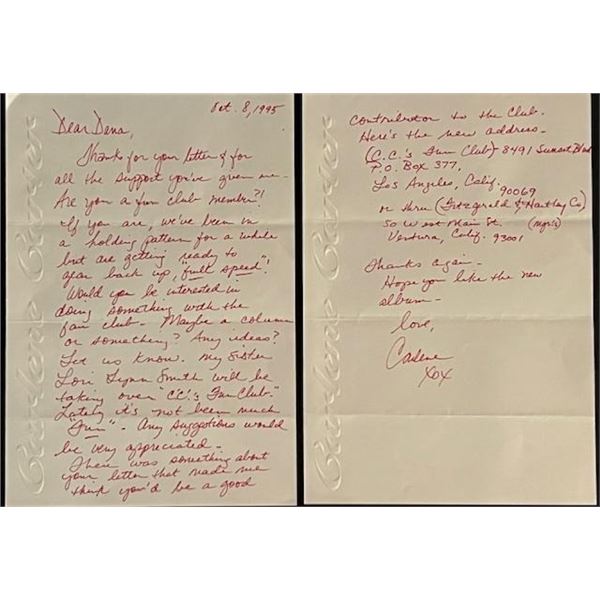 Oct. 8, 1995
Dear Dana,
Thanks for your letter & for
all the support you've given me.
Are you a fun club member?!
If you are, we've been in
a holding pattern for a while
but are getting ready to
gear back up, "full speed"!
Would you be interested in
doing something with the
fan club - Maybe a column
or something? Any ideas?
Let us know. My sister
Lori Lynn Smith will be
taking over "C.C.'s Fun Club."
Lately it's not been much
"Fun" - Any suggestions would
be very appreciated -
There was something about
your letter that made me
think you'd be a good
contributor to the Club.
Here's the new address -
(C.C.'s Fun Club) 8491 Sunset Blvd
P.O. Box 377,
Los Angeles, Calif.
90069
or thru (Fitzgerald & Hartley Co)
50 West Main St. (mgrs)
Ventura, Calif. 93001
Thanks again -
Hope you like the new
album -
Love,
Carlene
XOX
Carlene Carter